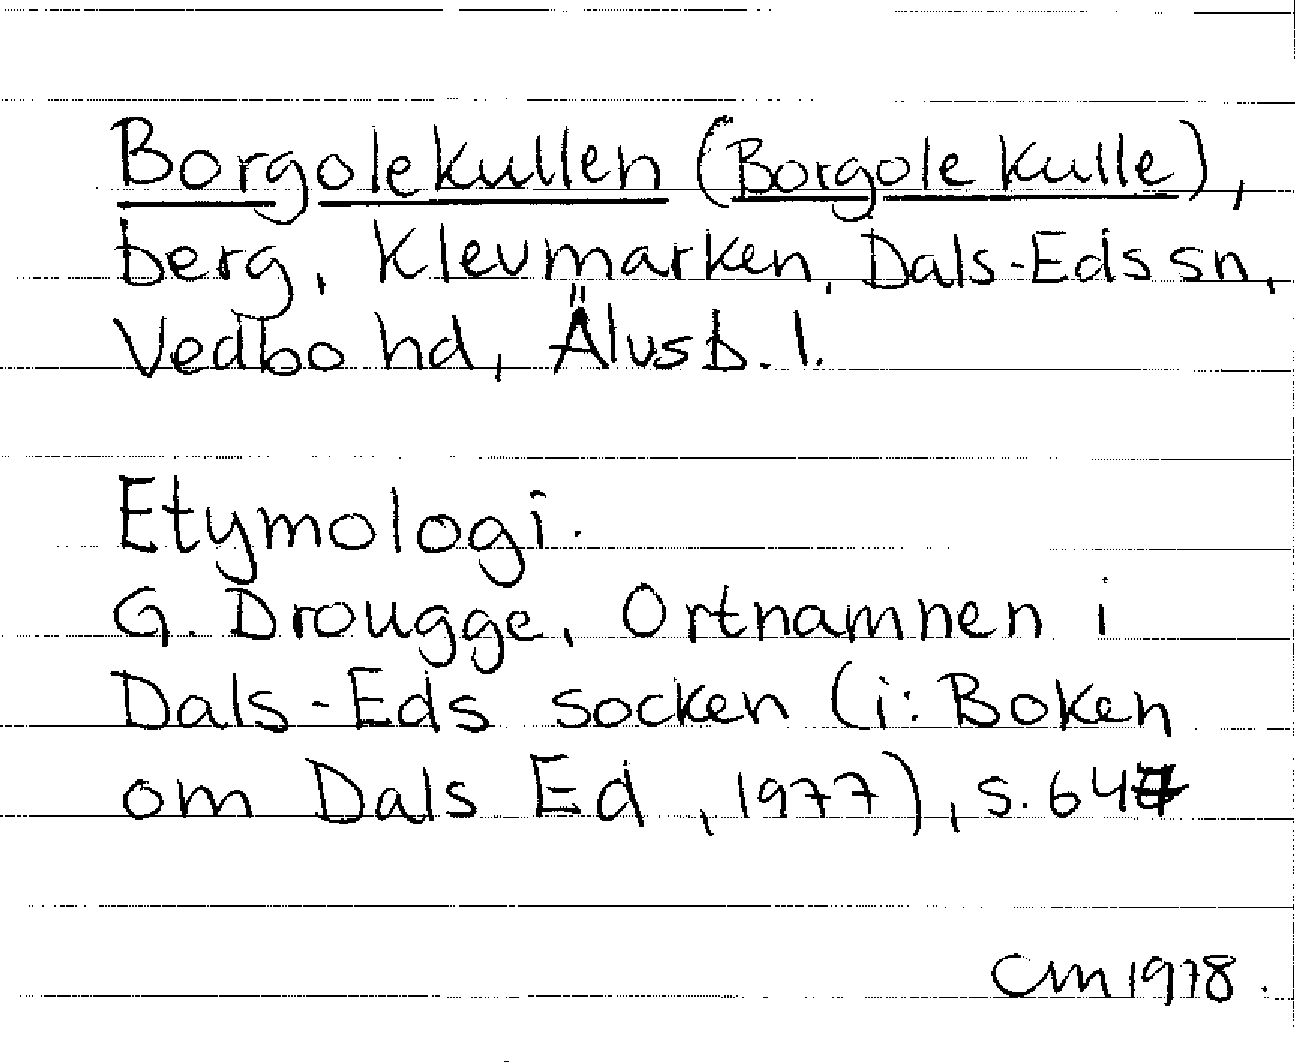 Borgolekullen (Borgole kulle),
berg, Klevmarken, Dals-Eds sn,
Vedbo hd, Älvsb. l.
Etymologi.
G. Drougge, Ortnamnen i
Dals-Eds socken (i: Boken
om Dals Ed, 1977), s. 64
CM 1978.